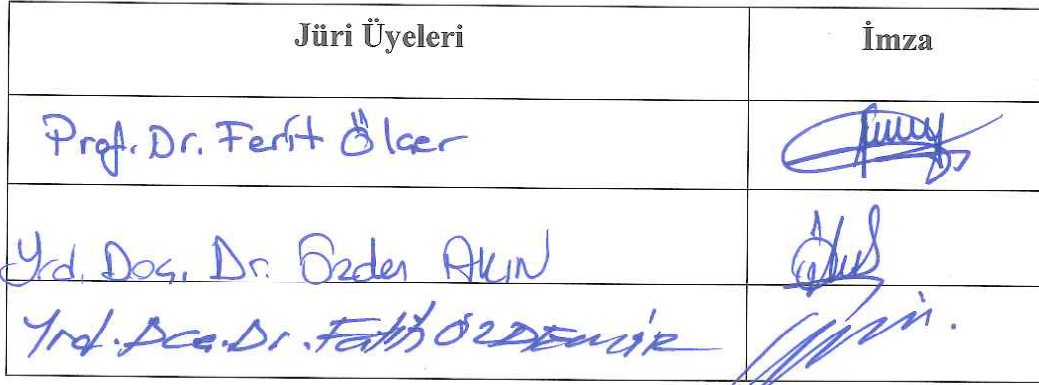 Jüri Üyeleri İmza
Prof. Dr. Ferit Ölçer
Yrd. Doç. Dr. Özden AKIN
Yrd. Doç. Dr. Fatih ÖZDEMİR